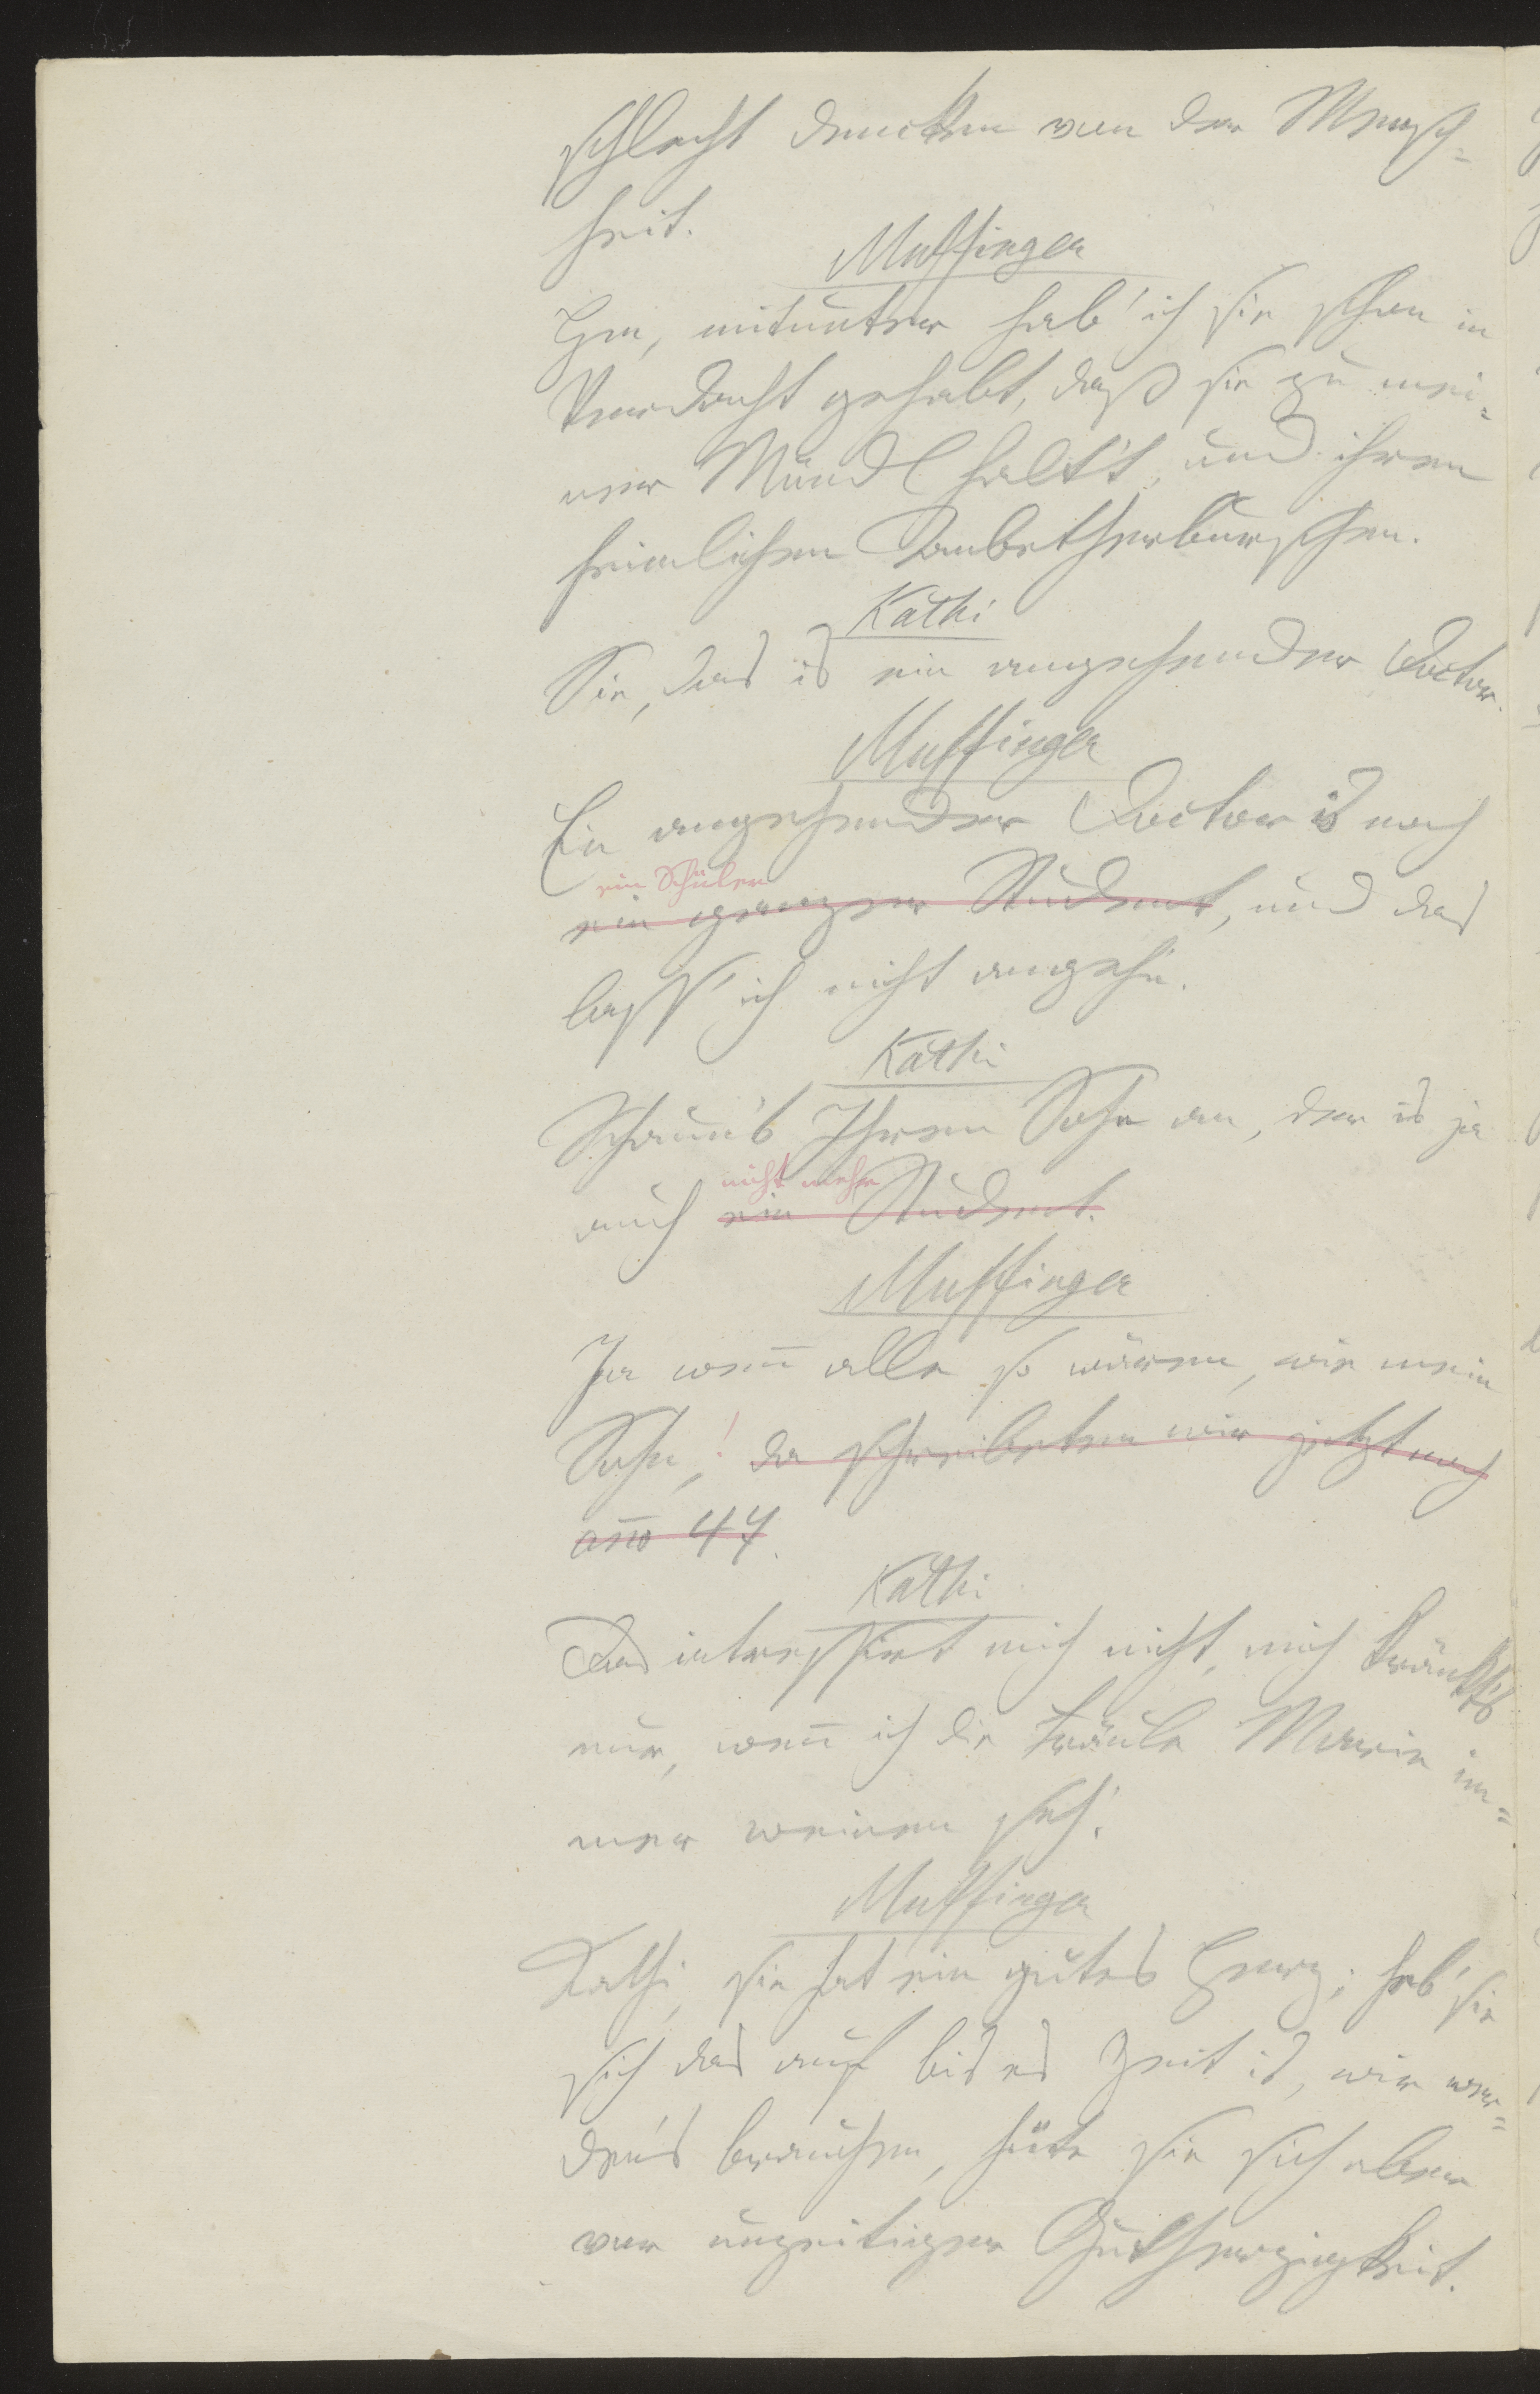 schlecht denckten von der Mensch-
heit.
Muffinger
Hm, mitunter hab' ich sie schon in
Verdacht gehabt, daß sie zu mei-
ner Mündl halt't, und ihren
heimlichen Anbetherburschen.
Kathi
Sie, das is ein angehender Doctor.
Muffinger
Ein angehender Doctor is noch
ein Schüler
ein ganzer Student, und das
lass' ich nicht angehn.
Kathi
Schaun's Ihren Sohn an, der is ja
nicht mehr
auch ein Student.
Muffinger
Ja weñ alle so wären, wie mein
Sohn,! da schreibeten wir jetzt noch
año 47.
Kathi
Das intressirt mich nicht, mich kränkt's
nur, weñ ich die Fräule Marie im-
mer weinen seh'.
Muffinger
Kathi, sie hat ein gutes Herz; heb' sie
sich das auf bis es Zeit is, wir wer-
den's brauchen, hüte sie sich aber
vor unzeitiger Gutherzigkeit.